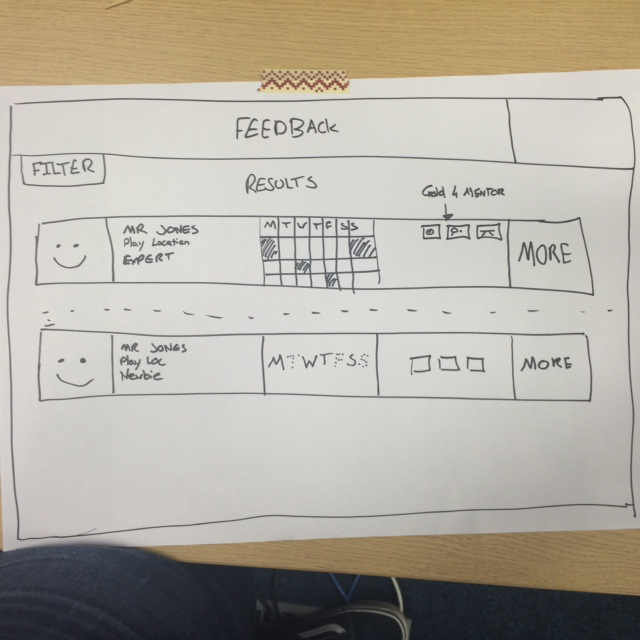 FEEDBACK
FILTER
RESULTS
Gold 4 MENTOR
MR JONES
Play Location
EXPERT
M T W T F S S
MORE
MR JONES
Play Loc
Newbie
M T W T F S S
MORE